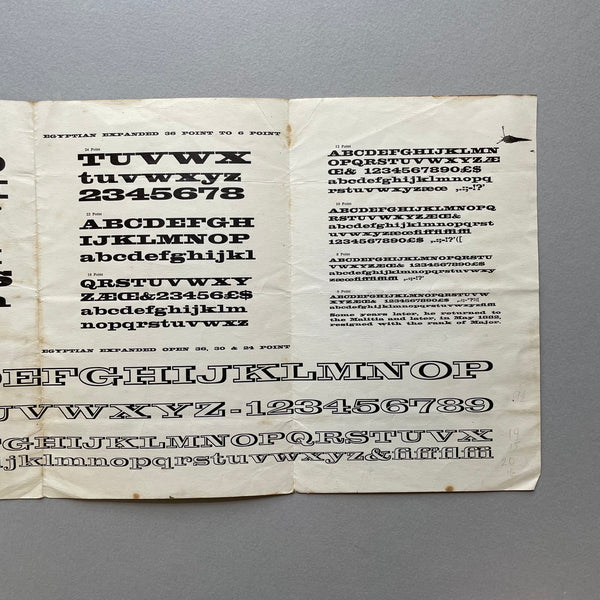 EGYPTIAN EXPANDED 36 POINT TO 6 POINT
24 Point
TUVWX
tuvwxyz
2345678
22 Point
ABCDEFGH
IJKLMNOP
abcdefghijkl
18 Point
QRSTUVWXY
ZÆŒ&23456£$
abcdefghijklm
nopqrstuvwxz
12 Point
ABCDEFGHIJKLMN
OPQRSTUVWXYZÆ
Œ& 1234567890£$
abcdefghijklmnopq
rstuvwxyzæœ ,.:;-!?'
10 Point
ABCDEFGHIJKLMNOPQ
RSTUVWXYZÆŒ&
abcdefghijklmnopqrst
uvwxyzæœfiffflffiffl
1234567890£$ ,.:;-!?'([
8 Point
ABCDEFGHIJKLMNOPQRSTU
VWXYZÆŒ& 1234567890£$
abcdefghijklmnopqrstuvwxy
6 Point
ABCDEFGHIJKLMNOPQRSTUVW
XYZÆŒ& 1234567890£$
Some years later, he returned to
the Malitia and later, in May 1882,
resigned with the rank of Major.
EGYPTIAN EXPANDED OPEN 36, 30 & 24 POINT
DEFGHIJKLMNOP
UVWXYZ-123456789
FGHIJKLMNOPQRSTUVX
ijklmnopqrstuvwxyz&fiffflffi